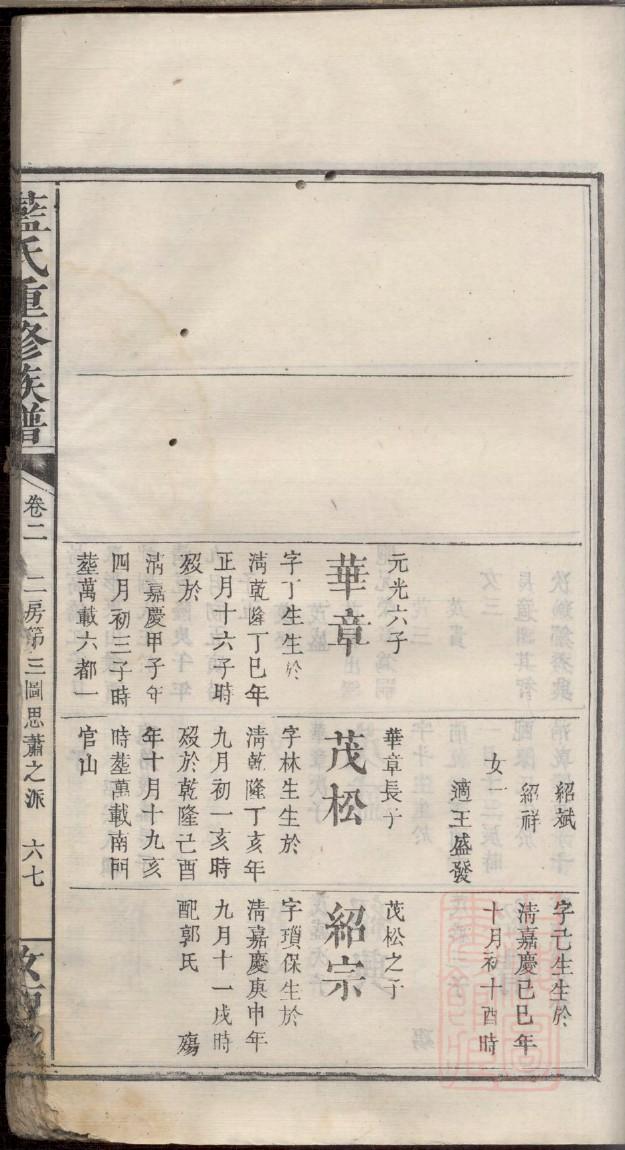 元光六子
華章
字丁生生於
淸乾隆丁巳年
正月十六子時
歿於
淸嘉慶甲子年
四月初三子時
塟萬載六都一
紹斌
紹祥
女一
適王盛發
華章長子
茂松
字林生生於
淸乾隆丁亥年
九月初一亥時
歿於乾隆己酉
年十月十九亥
時塟萬載南門
官山
字己生生於
淸嘉慶己巳年
十月初十酉時
茂松之子
紹宗
字瓆保生於
淸嘉慶庚申年
九月十一戌時
配郭氏 殤
藍氏重修族譜
卷二 二房第三圖思蕭之派 六七